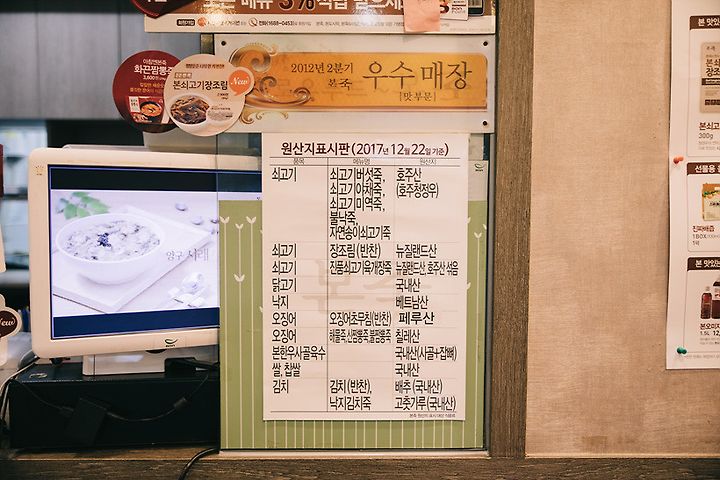 전화(1688-
아침엔본죽
화끈짬뽕죽
본쇠고기장조림
New
2012년 2분기
본죽
우수 매장
[맛 부문]
원산지표시판 (2017년 12월 22일 기준)
품목 메뉴명 원산지
쇠고기 쇠고기버섯죽, 호주산
쇠고기 야채죽, (호주청정우)
쇠고기 미역죽,
불낙죽,
자연송이쇠고기죽
쇠고기 장조림 (반찬) 뉴질랜드산
쇠고기 진품쇠고기육개장죽 뉴질랜드산, 호주산 섞음
닭고기 국내산
낙지 베트남산
오징어 오징어초무침(반찬) 페루산
오징어 해물죽,신짬뽕죽,불짬뽕죽 칠레산
본한우사골육수 국내산(사골+잡뼈)
쌀, 찹쌀 국내산
김치 김치 (반찬), 배추 (국내산)
낙지김치죽 고춧가루(국내산)
New
본 맛있는
본쇠고
장조림
300g
선물용
진파배즙
1BOX
1팩
본 맛있는
본오미자
1.5L